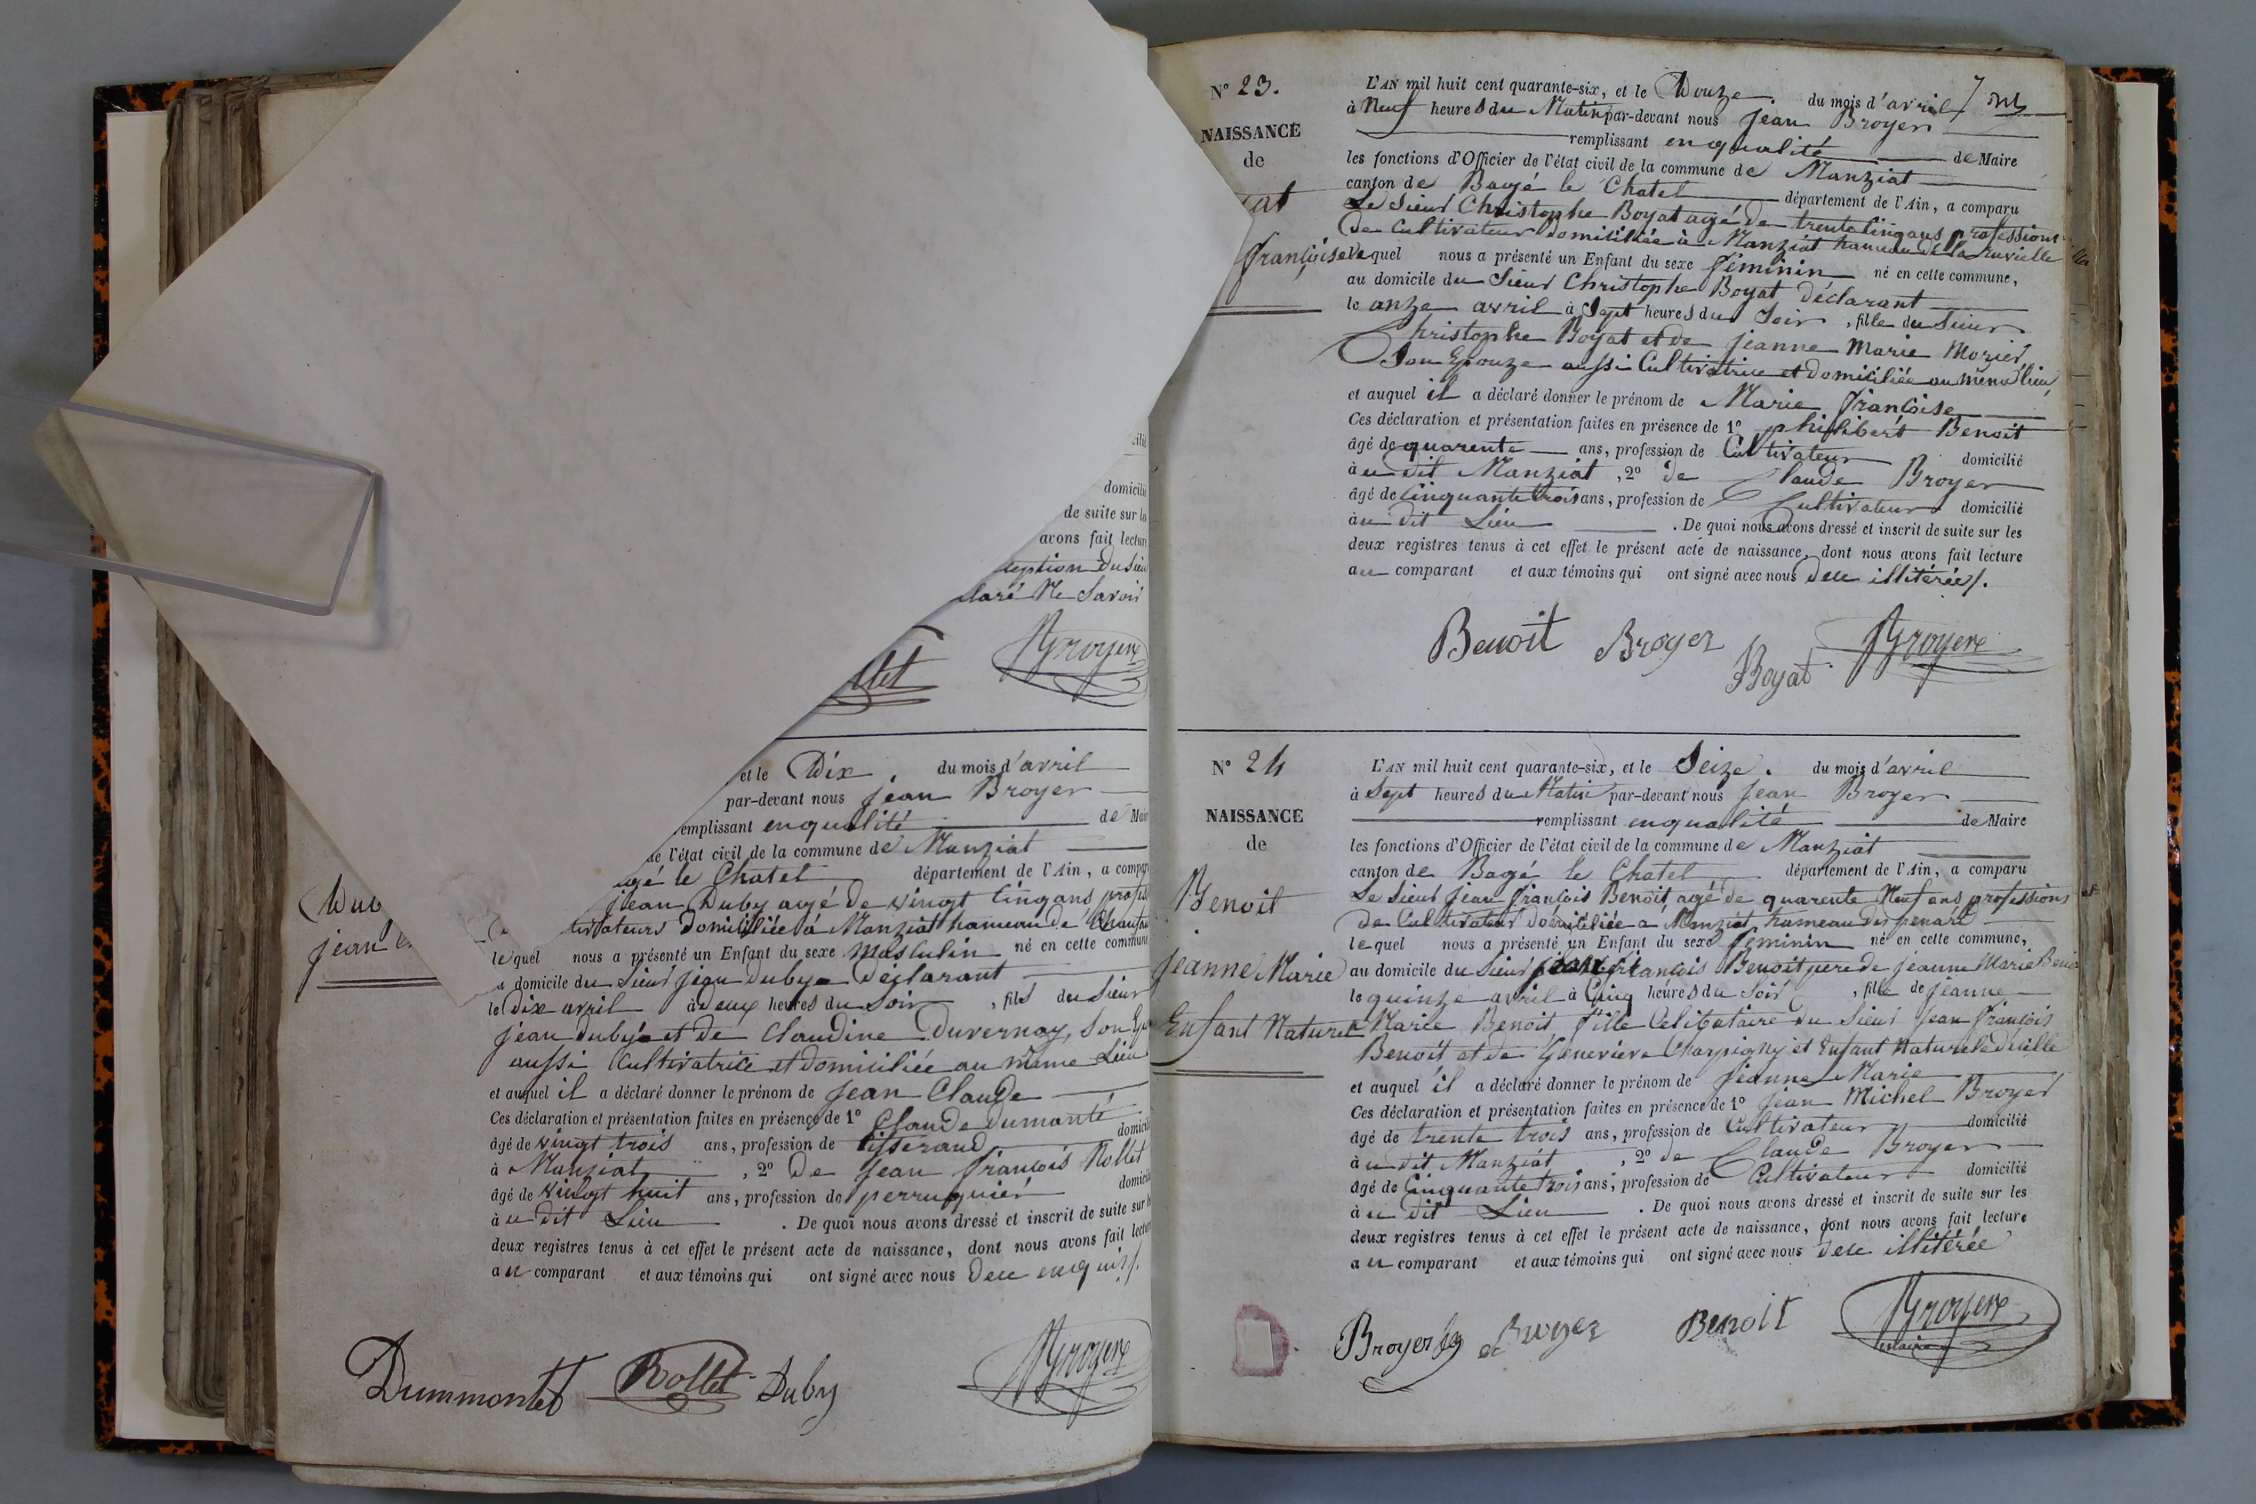 domicilié
de suite sur les
avons fait lecture
du Sieur
Ne Savoir
Broyer
et le Dix du mois d'avril
par-devant nous Jean Broyer
remplissant en qualité de Maire
de l'état civil de la commune de Manziat
agé le Chatel département de l'Ain, a comparu
Jean Duby agé de vingt Cinq ans
tivateurs domiciliée à Manziat hameau de
jean
le quel nous a présenté un Enfant du sexe Masculin né en cette commune
domicile du Sieur jean duby déclarant
le dix avril à deux heures du Soir, fils du Sieur
jean duby et de Claudine Duvernay, Son
aussi Cultivatrice et domiciliée au même Lieu
et auquel il a déclaré donner le prénom de Jean Claude
Ces déclaration et présentation faites en présence de 1° Claude dumonté
âgé de vingt trois ans, profession de tisserand
à Manziat, 2° de Jean François Rollet
âgé de vingt huit ans, profession de perruquier
au dit Lieu. De quoi nous avons dressé et inscrit de suite sur
deux registres tenus à cet effet le présent acte de naissance, dont nous avons fait lecture
au comparant et aux témoins qui ont signé avec nous
Dummontet Rollet Duby Broyer
N° 23.
NAISSANCE
de
at
françoise
L'AN mil huit cent quarante-six, et le Douze du mois d'avril
à Neuf heures du Matin par-devant nous Jean Broyer
remplissant en qualité de Maire
les fonctions d'Officier de l'état civil de la commune de Manziat
canton de Bagé le Chatel département de l'Ain, a comparu
Le Sieur Christophe Boyat agé de trente Cinq ans profession
de Cultivateur domiciliée à Manziat hameau de la
le quel nous a présenté un Enfant du sexe féminin né en cette commune,
au domicile du Sieur Christophe Boyat déclarant
le onze avril à Sept heures du Soir, fille du Sieur
Christophe Boyat et de jeanne Marie Morier
Son Epouze aussi Cultivatrice et domiciliée au même lieu
et auquel il a déclaré donner le prénom de Marie françoise
Ces déclaration et présentation faites en présence de 1° philibert Benoit
âgé de quarente ans, profession de Cultivateur domicilié
au dit Manziat, 2° de Claude Broyer
âgé de Cinquante trois ans, profession de Cultivateur domicilié
au dit Lieu. De quoi nous avons dressé et inscrit de suite sur les
deux registres tenus à cet effet le présent acte de naissance, dont nous avons fait lecture
au comparant et aux témoins qui ont signé avec nous illitérée
Benoit Broyer Boyat Broyer
N° 24
NAISSANCE
de
Benoit
jeanne Marie
Enfant Naturel
L'AN mil huit cent quarante-six, et le Seize. du mois d'avril
à Sept heures du Matin par-devant nous Jean Broyer
remplissant en qualité de Maire
les fonctions d'Officier de l'état civil de la commune de Manziat
canton de Bagé le Chatel département de l'Ain, a comparu
Le Sieur Jean François Benoit agé de quarente Neuf ans profession
de Cultivateur domiciliée à Manziat hameau des penard
le quel nous a présenté un Enfant du sexe féminin né en cette commune,
au domicile du Sieur françois Benoit pere de jeanne Marie Benoit
le quinze avril à Cinq heures du Soir, fille de jeanne
Marie Benoit fille Célibataire du Sieur jean françois
Benoit et de Genevieve Charpigny et Enfant Naturel
et auquel il a déclaré donner le prénom de Jeanne Marie
Ces déclaration et présentation faites en présence de 1° Jean Michel Broyer
âgé de trente trois ans, profession de Cultivateur domicilié
au dit Manziat, 2° de Claude Broyer
âgé de Cinquante trois ans, profession de Cultivateur domicilié
au dit Lieu. De quoi nous avons dressé et inscrit de suite sur les
deux registres tenus à cet effet le présent acte de naissance, dont nous avons fait lecture
au comparant et aux témoins qui ont signé avec nous illitérée
Broyer Broyer Benoit Broyer